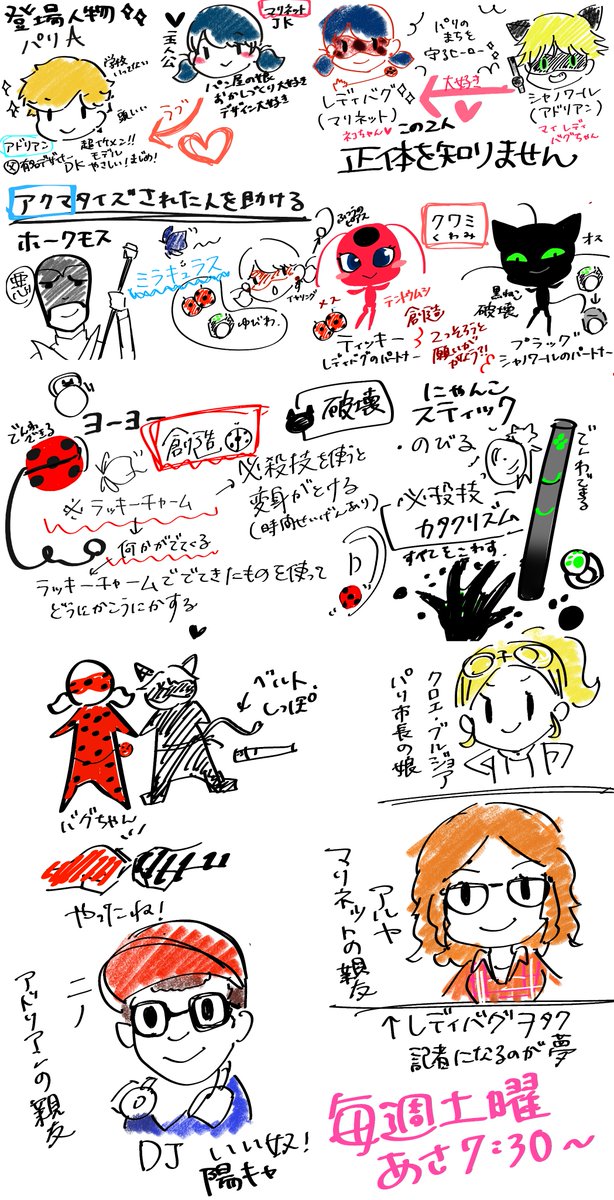 登場人物
パリA
マリネット
JK
主人公
パン屋の娘
おかしづくり大好き
デザイン大好き
ラブ
学校
頭いい
アドリアン
超イケメン!!
モデル
DK やさしい!まじめ!
パリの
まちを
守るヒーロー
レディバグ
(マリネット)
ネコちゃん
大好き
シャノワール
(アドリアン)
マイレディ
バグちゃん
この2人
正体を知りません
アクマタイズされた人を助ける
ホークモス
悪
ミラキュラス
イヤリング
ゆびわ
クワミ
くわみ
メス
テントウムシ
創造
ティッキー
レディバグのパートナー
2つそろうと
願いが
かなう?!
オス
黒ねこ
破壊
プラッグ
シャノワールのパートナー
でんわできる
ヨーヨー
創造
必 ラッキーチャーム
何かがでてくる
ラッキーチャームででてきたものを使って
どうにかこうにかする
破壊
必殺技を使うと
変身がとける
(時間せいげんあり)
にゃんこ
スティック
のびる
でんわできる
必殺技
カタクリズム
すべてをこわす
ベルト
しっぽ
バグちゃん
やったね!
クロエ・ブルジョア
パリ市長の娘
アルヤ
マリネットの親友
↑レディバグヲタク
記者になるのが夢
ニノ
アドリアンの親友
DJ いい奴!
陽キャ
毎週土曜
あさ7:30~